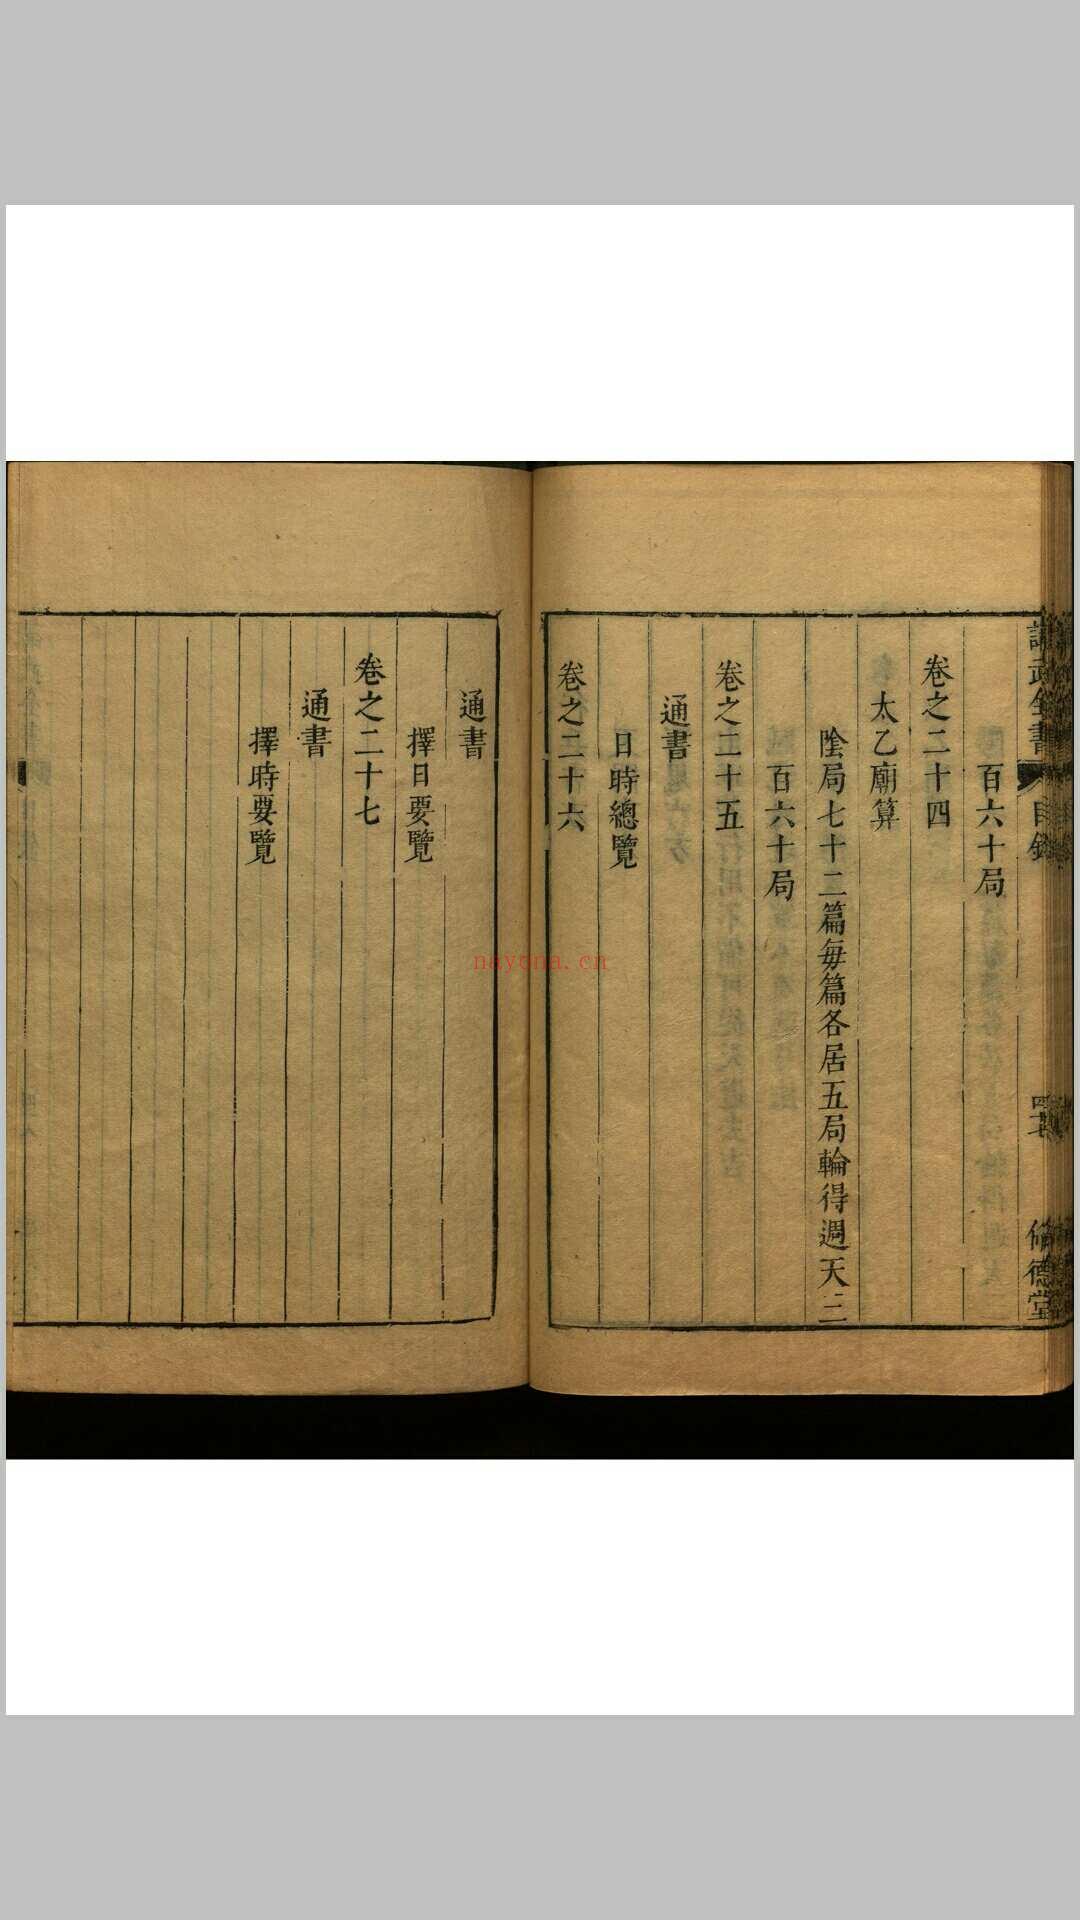 講武全書 目錄 四十七 脩德堂
百六十局
卷之二十四
太乙廟算
陰局七十二篇每篇各居五局輪得週天三
百六十局
卷之二十五
通書
日時總覽
卷之二十六
通書
擇日要覽
卷之二十七
通書
擇時要覽
nayona.cn